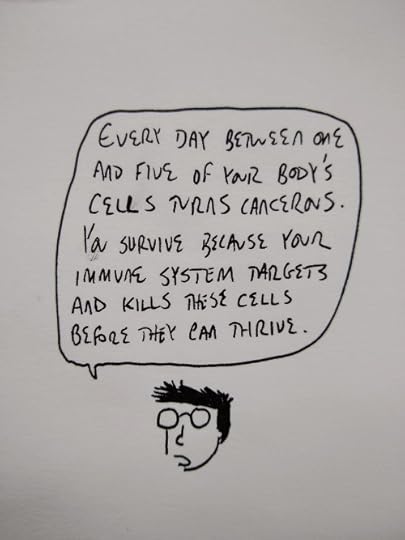 EVERY DAY BETWEEN ONE
AND FIVE OF YOUR BODY'S
CELLS TURNS CANCEROUS.
YOU SURVIVE BECAUSE YOUR
IMMUNE SYSTEM TARGETS
AND KILLS THESE CELLS
BEFORE THEY CAN THRIVE.